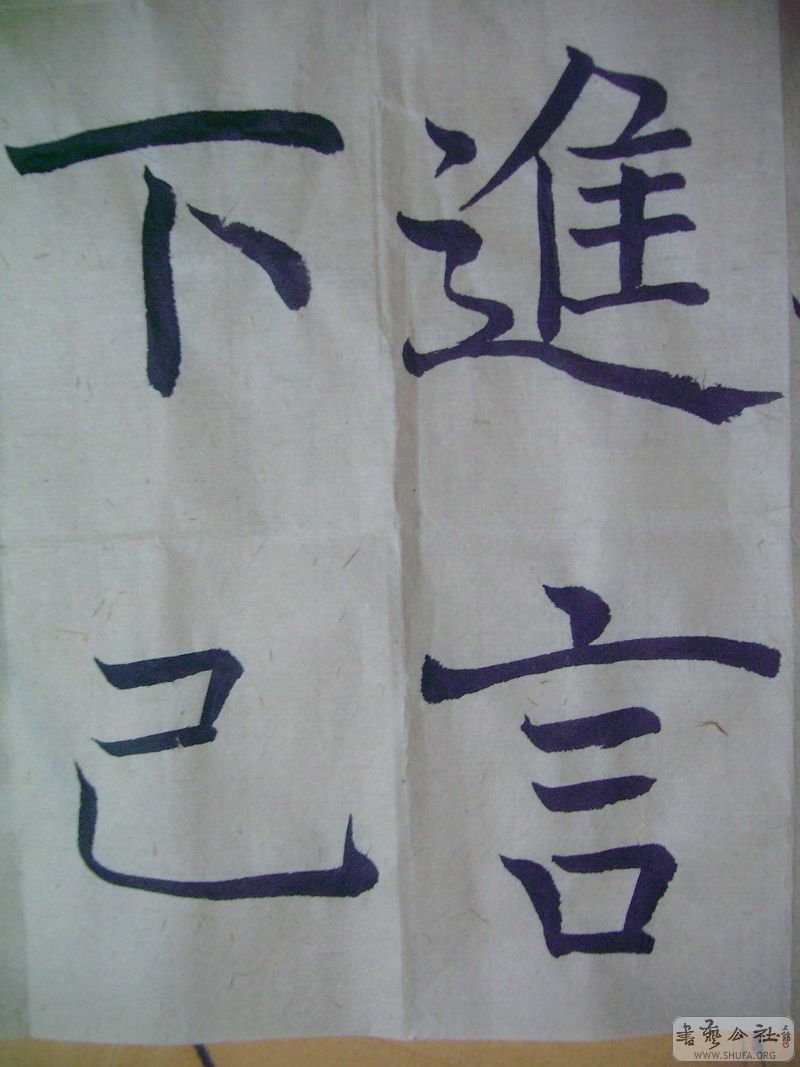 進言
下己
書藝公社
WWW.SHUFA.ORG